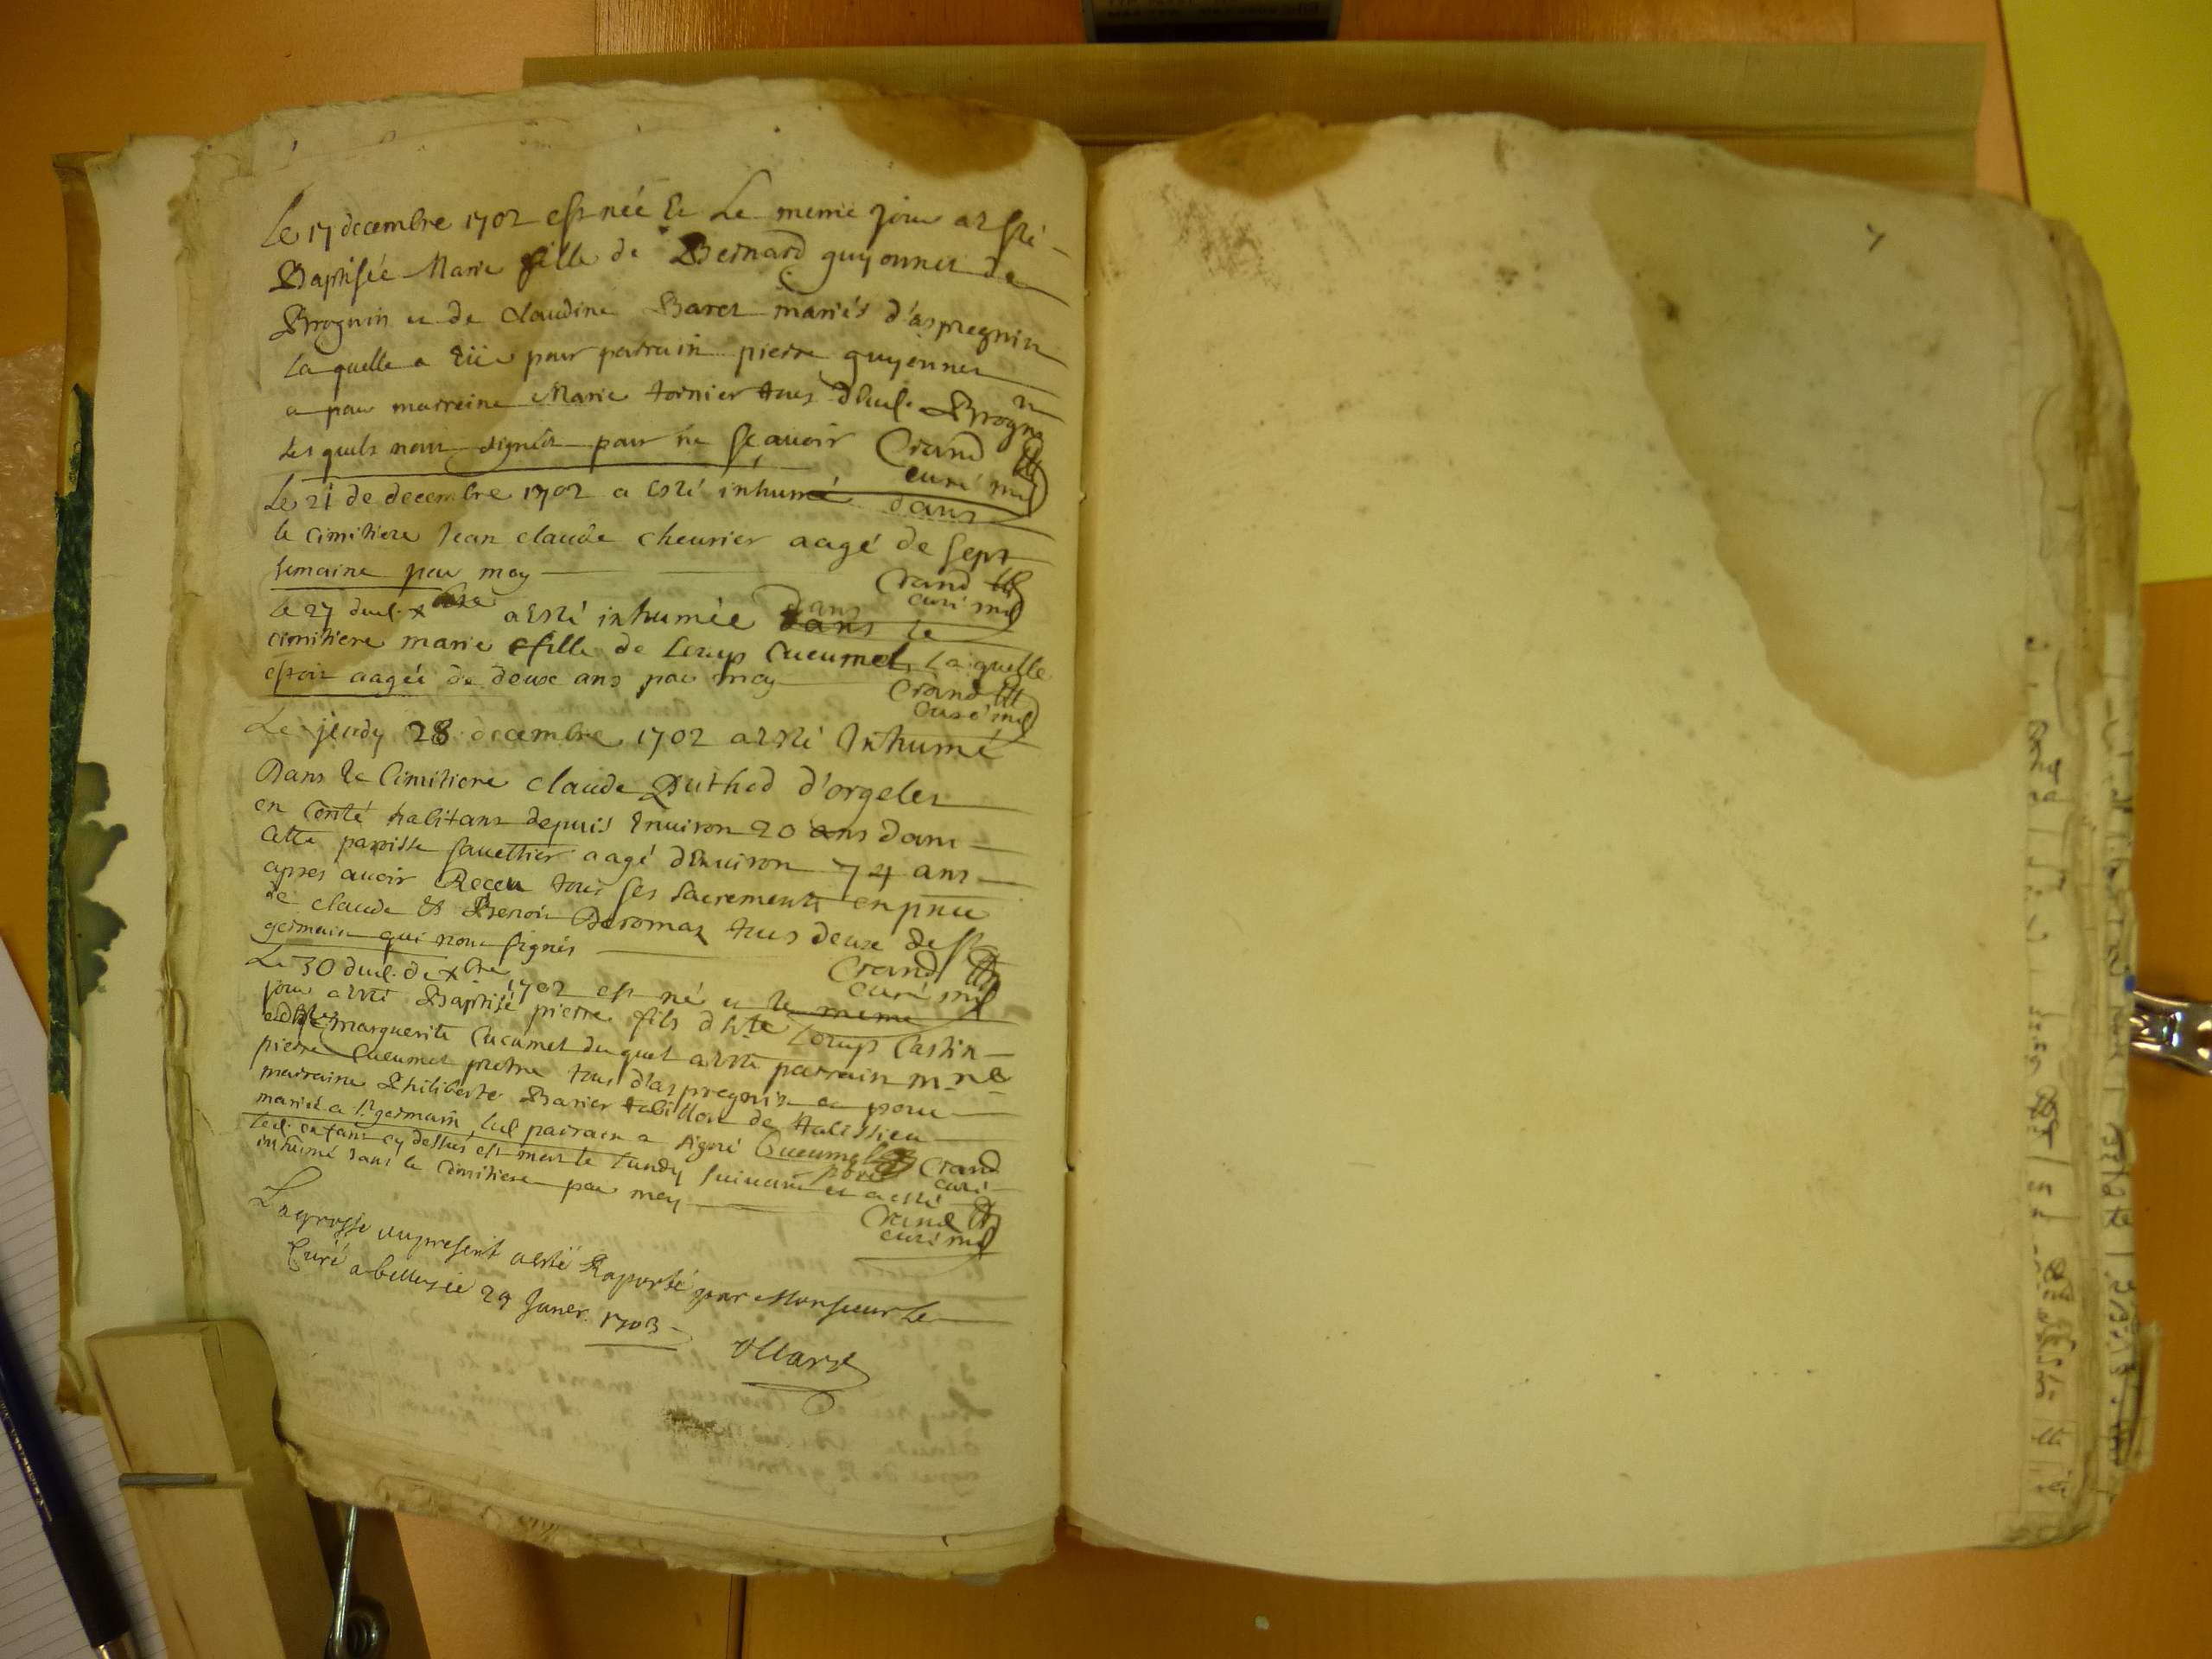 Le 17 decembre 1702 est née & Le meme jour a esté
Baptisée Marie fille de Bernard guyonnet de
Brognin et de claudine Baret mariés d'aspregnin
laquelle a eüe pour parrain pierre guyonnet
et pour marreine Marie tornier tous dud. Brognin
Lesquels nont signés pour ne sçavoir Crand
curé
Le 21 de decembre 1702 a esté inhumé dans
le cimitiere Jean claude cheurier aagé de sept
semaine par moy Crand
curé
le 27 dud. xbre a esté inhumée dans le
cimitiere marie fille de Loup Cucumel, laquelle
estoit aagée de deux ans par moy Crand
curé
Le jeudy 28 decembre 1702 a esté Inhumé
Dans le Cimitiere claude Duthod d'orgelet
en Conté habitant depuis Environ 20 ans dans
cette paroisse sauettier aagé d'Environ 74 ans
apres avoir Receu tous ses sacrements en pnce
de claude & Benoit Deromaz tous deux de st
germain qui nont signés Crand
curé
Le 30 dud. de xbre 1702 est né et le meme
jour a esté Baptisé pierre fils d'hble Loup Castin
et de marguerite Cucumel duquel a esté parrain mre
pierre Cucumel pretre tous d'aspregnin et pour
marraine Philiberte Barier
mariés a st germain, led parrain a signé Cucumel Crand
curé
led. enfant cy dessus est mort le lundy suivant et a esté
inhumé dans le cimitiere par moy Crand
curé
La grosse du present a esté Raportée par Monsieur le
Curé a belley ce 29 Janer. 1703